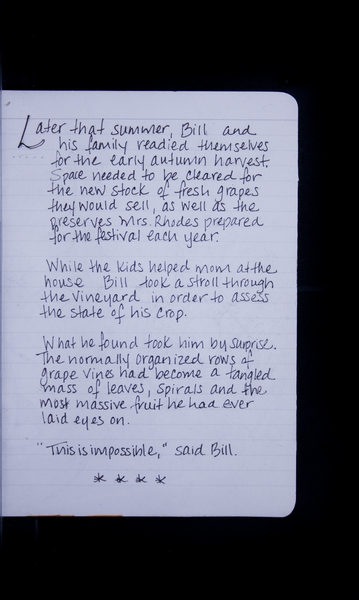 Later that summer, Bill and
his family readied themselves
for the early autumn harvest.
Space needed to be cleared for
the new stock of fresh grapes
they would sell, as well as the
preserves Mrs. Rhodes prepared
for the festival each year.
While the kids helped mom at the
house Bill took a stroll through
the vineyard in order to assess
the state of his crop.
What he found took him by surprise.
The normally organized rows of
grape vines had become a tangled
mass of leaves, spirals and the
most massive fruit he had ever
laid eyes on.
"This is impossible," said Bill.
* * * *